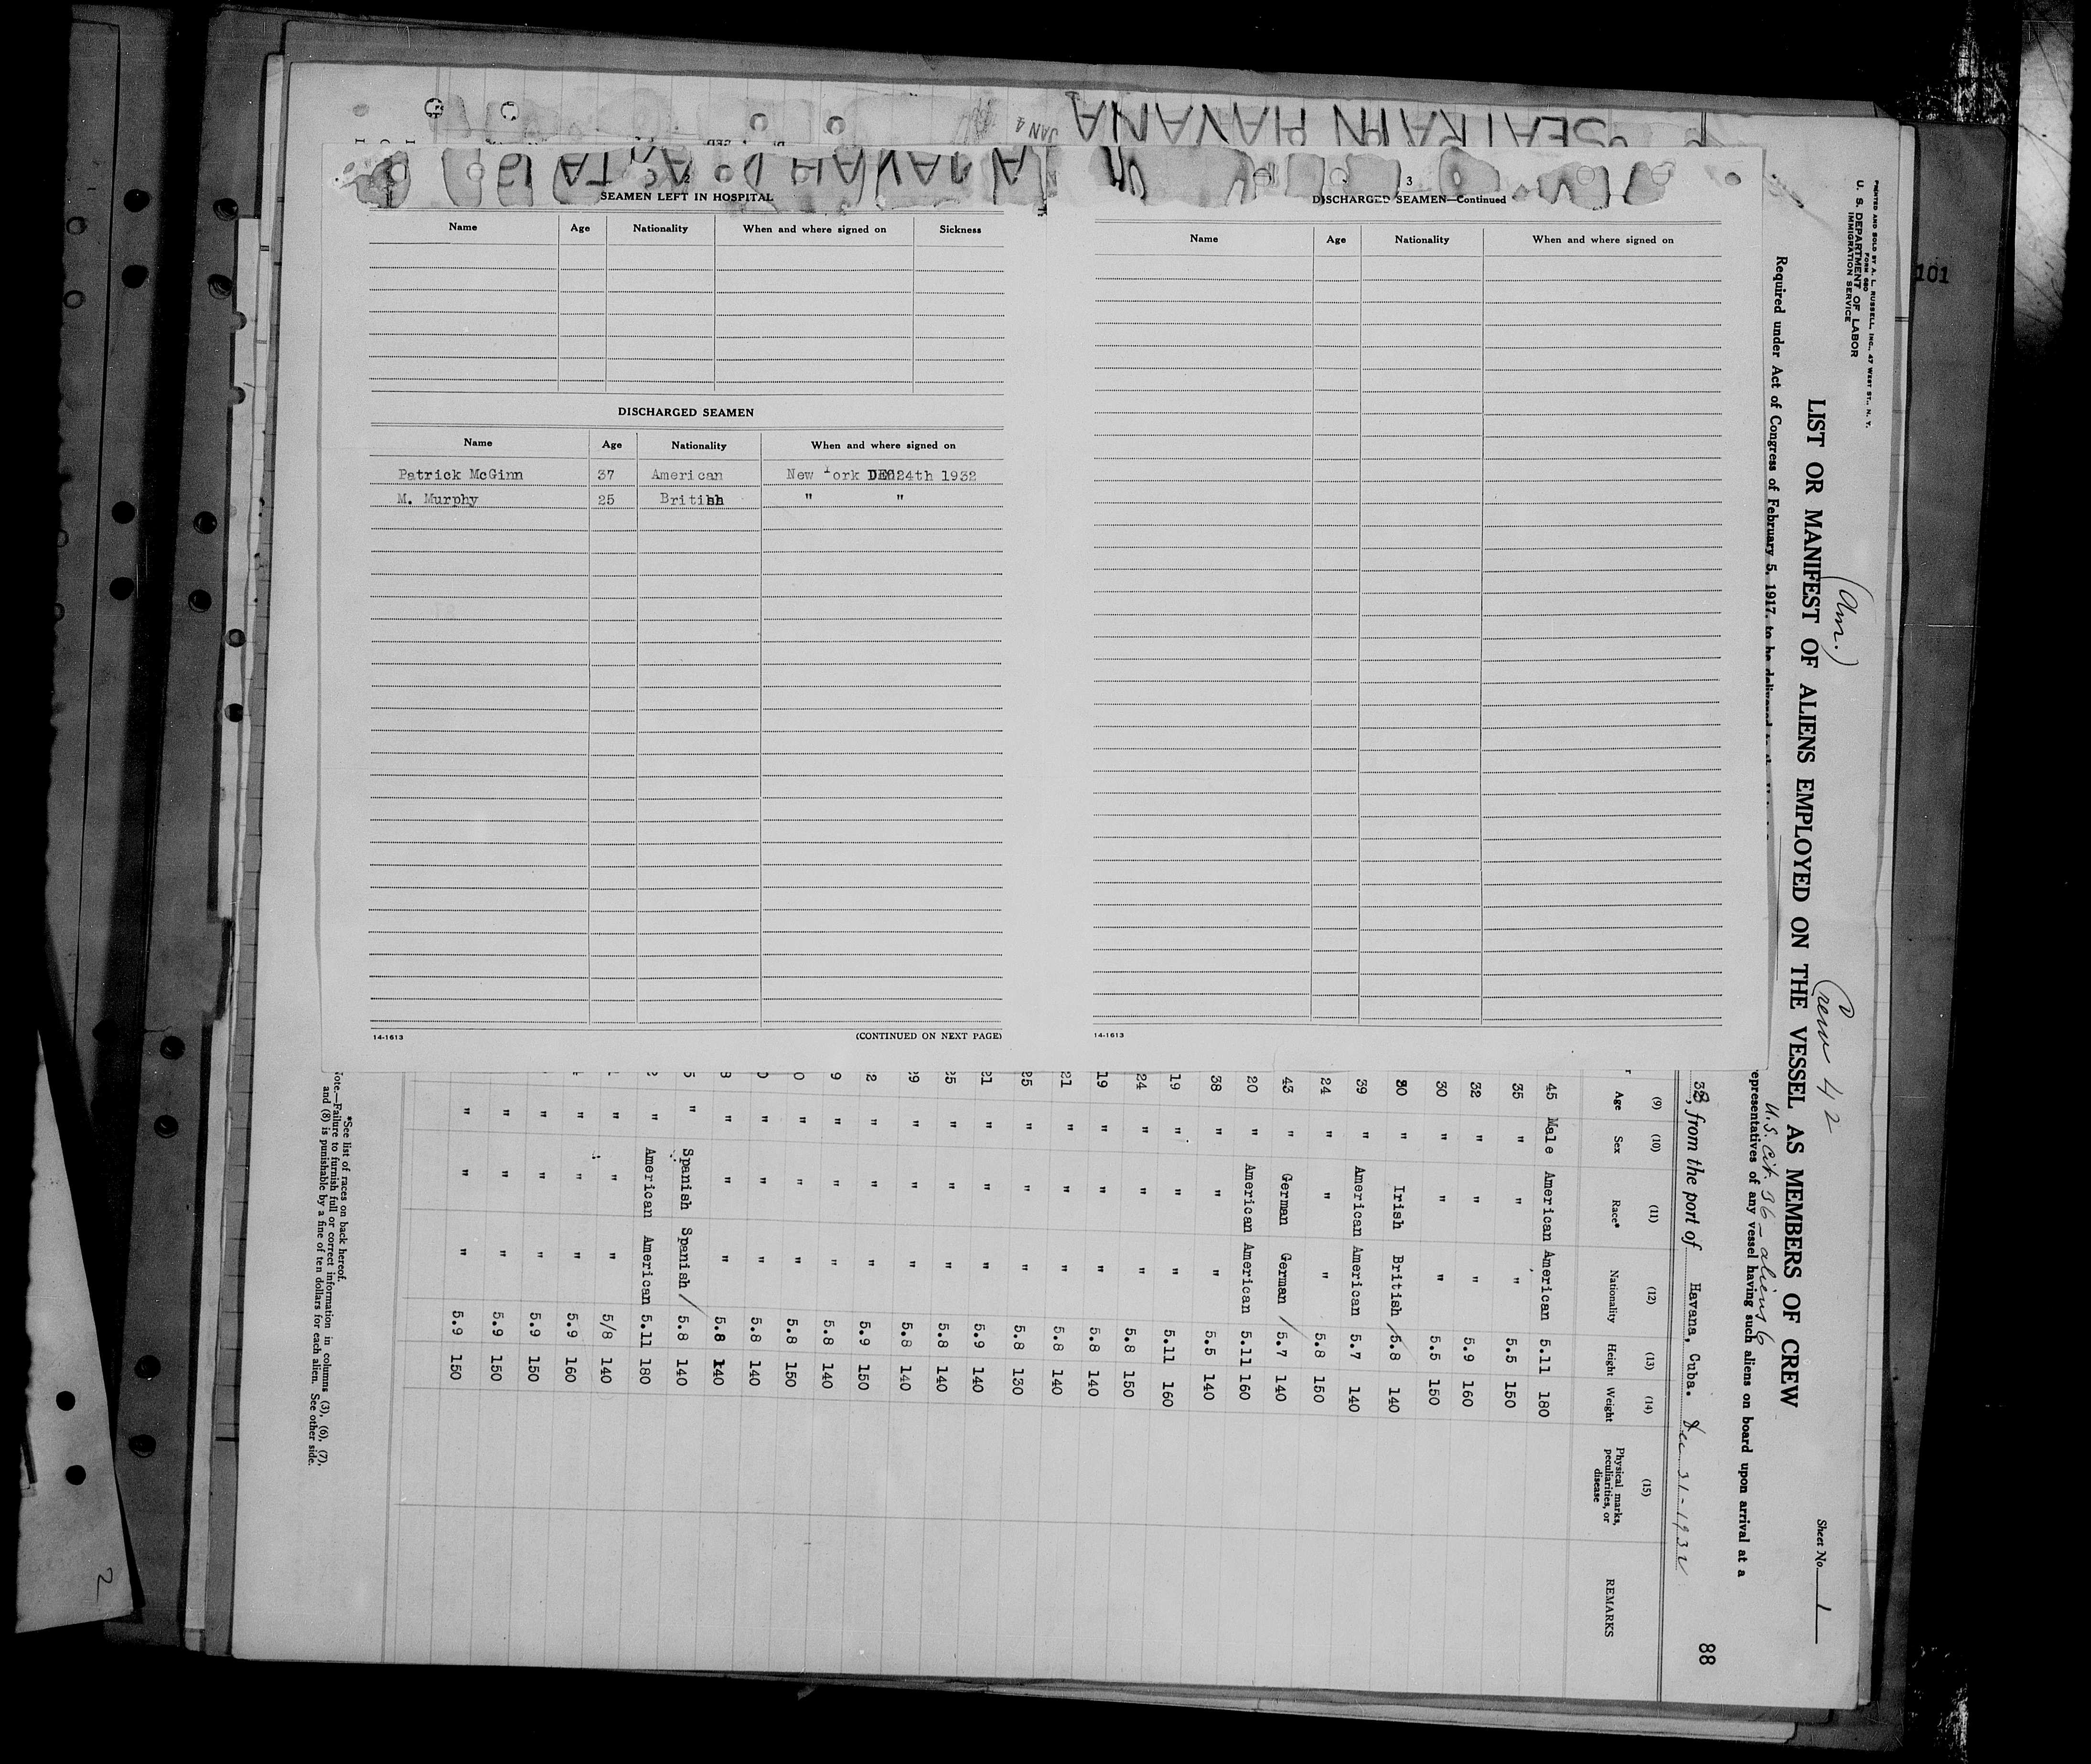 SEATRAIN HAVANA
JAN 4
2
SEAMEN LEFT IN HOSPITAL
Name Age Nationality When and where signed on Sickness
DISCHARGED SEAMEN
Name Age Nationality When and where signed on
Patrick McGinn 37 American New York DEC 24th 1932
M. Murphy 25 British " "
14-1613 (CONTINUED ON NEXT PAGE)
3
DISCHARGED SEAMEN—Continued
Name Age Nationality When and where signed on
14-1613
101
PRINTED AND SOLD BY A. L. RUSSELL, INC., 47 WEST ST., N. Y.
FORM 680
U. S. DEPARTMENT OF LABOR
IMMIGRATION SERVICE
(Am.) Crew 42
Sheet No. 1
LIST OR MANIFEST OF ALIENS EMPLOYED ON THE VESSEL AS MEMBERS OF CREW
U.S. Cit. 36 - aliens 6
Required under Act of Congress of February 5, 1917, to be delivered to the
representatives of any vessel having such aliens on board upon arrival at a
88
, from the port of Havana, Cuba. Dec 31-1932
(9) (10) (11) (12) (13) (14) (15)
Age Sex Race* Nationality Height Weight Physical marks, peculiarities, or disease REMARKS
45 Male American American 5.11 180
35 " " " 5.5 150
32 " " " 5.9 160
30 " " " 5.5 150
30 " Irish British / 5.8 140
39 " American American 5.7 140
24 " " " 5.8 150
43 " German German / 5.7 140
20 " American American 5.11 160
38 " " " 5.5 140
19 " " " 5.11 160
24 " " " 5.8 150
19 " " " 5.8 140
21 " " " 5.8 140
25 " " " 5.8 130
21 " " " 5.9 140
25 " " " 5.8 140
29 " " " 5.8 140
2 " " " 5.9 150
9 " " " 5.8 140
0 " " " 5.8 150
0 " " " 5.8 140
" " " 5.8 140
" Spanish Spanish / 5.8 140
" American American 5.11 180
" " " 5/8 140
" " " 5.9 160
" " " 5.9 150
" " " 5.9 150
" " " 5.9 150
*See list of races on back hereof.
Note.—Failure to furnish full or correct information in columns (3), (6), (7),
and (8) is punishable by a fine of ten dollars for each alien. See other side.
2